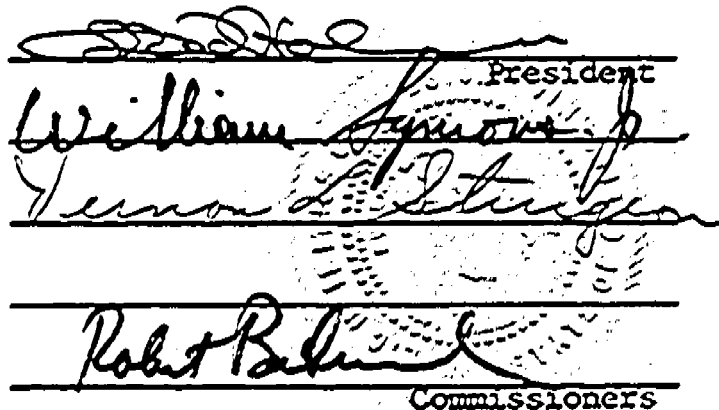 President
William Symons Jr
Vernon L Sturgeon
Robert Batinovich
Commissioners